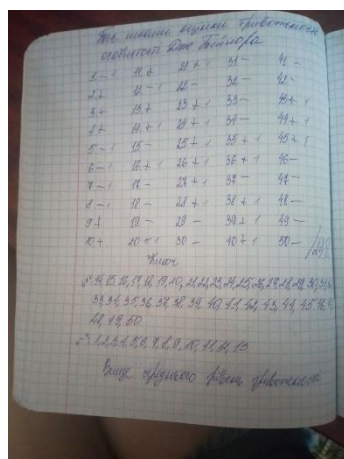 шкали оцінки тривожності
особистості Дж. Тейлора
1 - 1 11 + 21 + 1 31 - 41 -
2 + 12 - 1 22 - 32 - 42 -
3 + 13 + 23 + 1 33 - 43 + 1
4 + 14 + 1 24 + 1 34 - 44 + 1
5 - 1 15 - 25 + 1 35 + 1 45 + 1
6 - 1 16 + 1 26 + 1 36 + 1 46 -
7 - 1 17 - 27 + 1 37 - 47 -
8 - 1 18 - 28 + 1 38 + 1 48 -
9 + 19 - 29 - 39 + 1 49 -
10 + 20 + 1 30 - 40 + 1 50 -
Ключ
14, 15, 16, 17, 18, 19, 20, 21, 22, 23, 24, 25, 26, 27, 28, 29, 30, 31, 32
33, 34, 35, 36, 37, 38, 39, 40, 41, 42, 43, 44, 45, 46
48, 49, 50
1, 2, 3, 4, 5, 6, 7, 8, 9, 10, 11, 12, 13
Вище середнього рівень тривожності